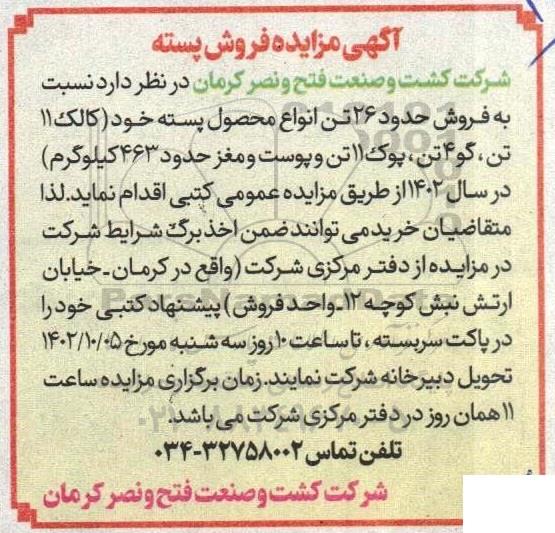 آگهی مزایده فروش پسته
شرکت کشت و صنعت فتح و نصر کرمان در نظر دارد نسبت
به فروش حدود ۲۶ تن انواع محصول پسته خود (کالک ۱۱
تن، گو ۴ تن، پوک ۱۱ تن و پوست و مغز حدود ۴۶۳ کیلوگرم)
در سال ۱۴۰۲ از طریق مزایده عمومی کتبی اقدام نماید. لذا
متقاضیان خرید می توانند ضمن اخذ برگ شرایط شرکت
در مزایده از دفتر مرکزی شرکت (واقع در کرمان ـ خیابان
ارتش نبش کوچه ۱۲ـ واحد فروش) پیشنهاد کتبی خود را
در پاکت سربسته، تا ساعت ۱۰ روز سه شنبه مورخ ۱۴۰۲/۱۰/۰۵
تحویل دبیرخانه شرکت نمایند. زمان برگزاری مزایده ساعت
۱۱ همان روز در دفتر مرکزی شرکت می باشد.
تلفن تماس ۳۲۷۵۸۰۰۲-۰۳۴
شرکت کشت و صنعت فتح و نصر کرمان